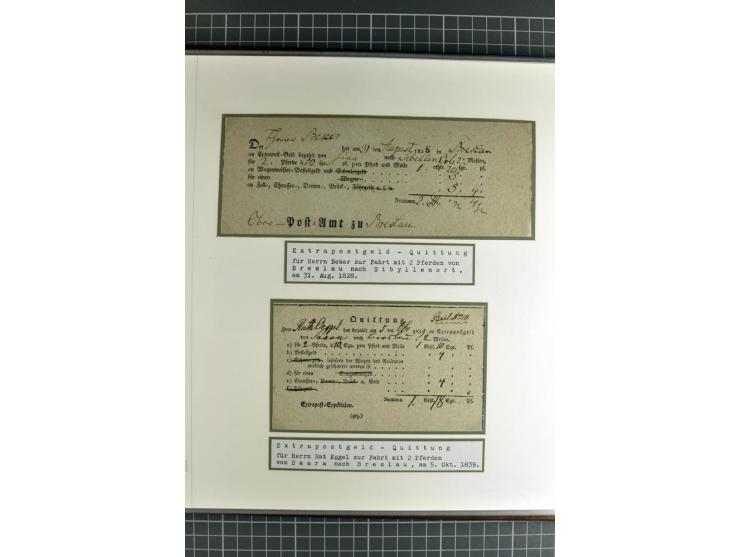 Herr Beker
De hat am 31 ten August 1828 in Breslau
an Extrapost-Geld bezahlt von hier nach Sibyllenort 2 Meilen,
für 2 Pferde à 10 sgr. pf. pro Pferd und Meile 1 rthlr. 10 sgr. pf.
an Wagenmeister-Bestellgeld und Schmiergeld 5
für einen Wagen
an Zoll-, Chaussee-, Damm-, Brück-, Fährgeld u. s. w. 5 4
Summa
Ober-Post-Amt zu Breslau.
Extrapostgeld - Quittung
für Herrn Beker zur Fahrt mit 2 Pferden von
Breslau nach Sibyllenort,
am 31. Aug. 1828.
Quittung
Herr Rath Eggel hat bezahlt am 5 an Extrapostgeld
von Saara nach Breslau 2 Meilen.
a) für 2 Pferde, à 10 Sgr. pro Pferd und Meile 1 Rtlr. 10 Sgr. Pf.
b) Bestellgeld 4
c) Schmiergeld, insofern der Wagen des Reisenden
wirklich geschmiert worden ist
d) für einen
e) Chaussee-, Damm-, Brück- u. Geld 4
Summa 1 Rtlr. 18 Sgr. Pf.
Extrapost-Expedition.
Extrapostgeld - Quittung
für Herrn Rat Eggel zur Fahrt mit 2 Pferden
von Saara nach Breslau, am 5. Okt. 1839.